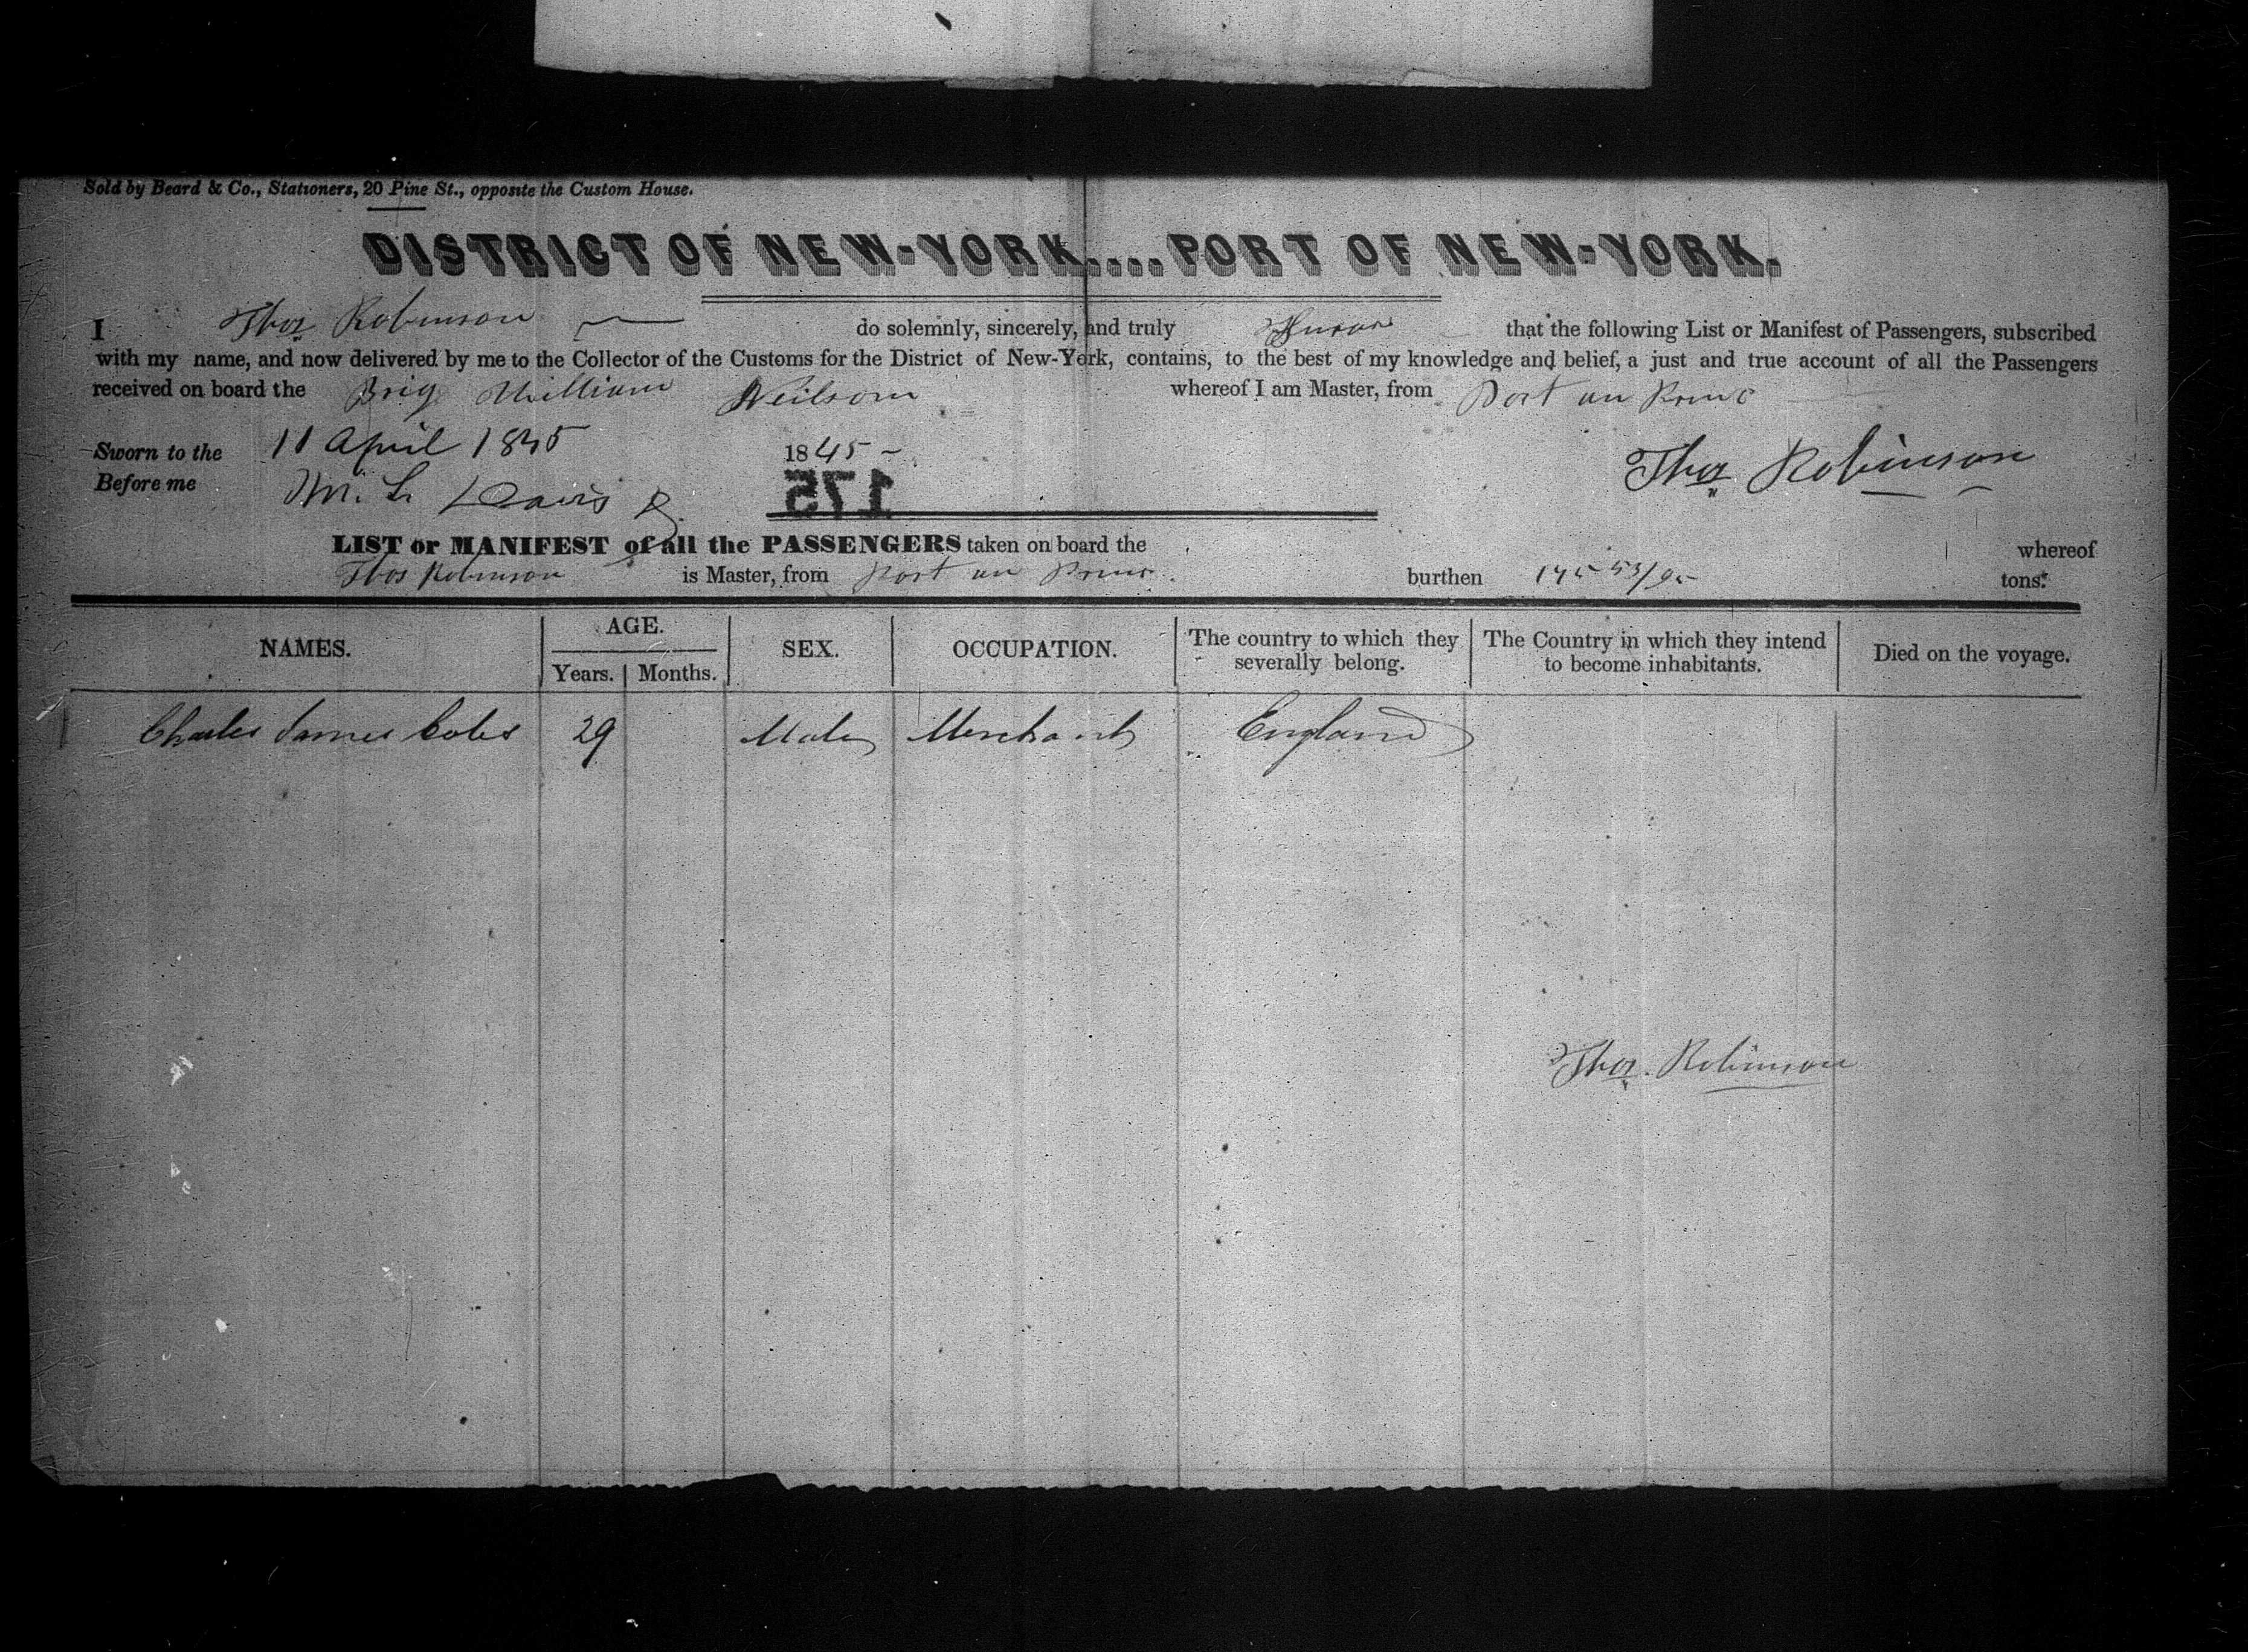 Sold by Beard & Co., Stationers, 20 Pine St., opposite the Custom House.
DISTRICT OF NEW-YORK....PORT OF NEW-YORK.
I Thos Robinson do solemnly, sincerely, and truly Swear that the following List or Manifest of Passengers, subscribed
with my name, and now delivered by me to the Collector of the Customs for the District of New-York, contains, to the best of my knowledge and belief, a just and true account of all the Passengers
received on board the Brig William Neilson whereof I am Master, from Port au Prince
Sworn to the 11 April 1845 1845 -
Before me M. L. Davis Thos Robinson
175
LIST or MANIFEST of all the PASSENGERS taken on board the whereof
Thos Robinson is Master, from Port au Prince burthen 53/95 tons.
NAMES. AGE. Years. Months. SEX. OCCUPATION. The country to which they severally belong. The Country in which they intend to become inhabitants. Died on the voyage.
Charles James Coles 29 Male Merchant England
Thos. Robinson